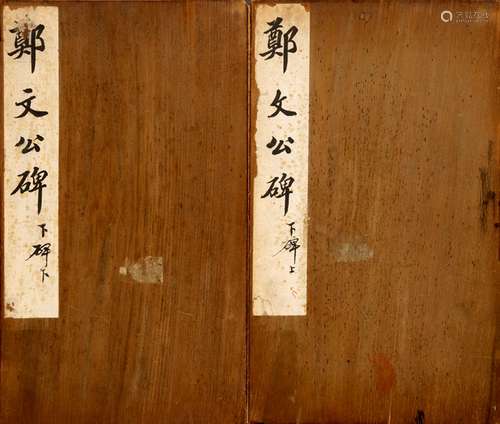 鄭文公碑
下碑上
鄭文公碑
下碑下